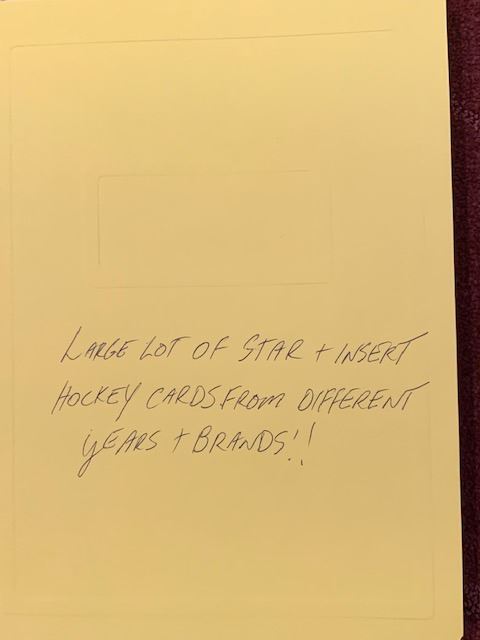 LARGE LOT OF STAR + INSERT
HOCKEY CARDS FROM DIFFERENT
YEARS + BRANDS!!